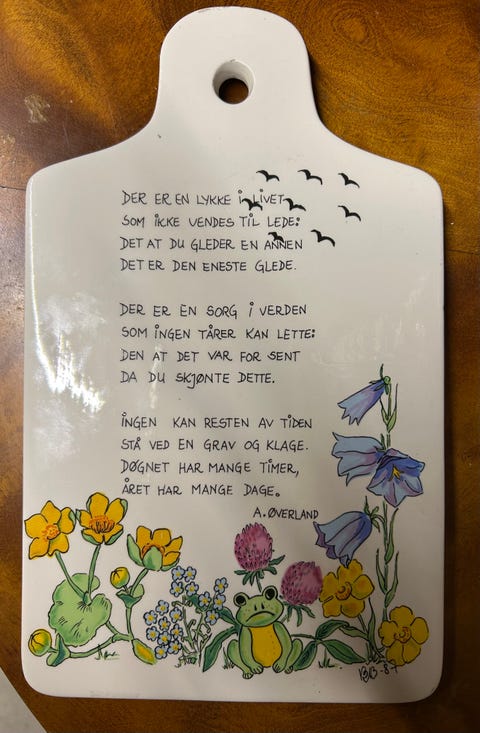 DER ER EN LYKKE I LIVET
SOM IKKE VENDES TIL LEDE:
DET AT DU GLEDER EN ANNEN
DET ER DEN ENESTE GLEDE.
DER ER EN SORG I VERDEN
SOM INGEN TÅRER KAN LETTE:
DEN AT DET VAR FOR SENT
DA DU SKJØNTE DETTE.
INGEN KAN RESTEN AV TIDEN
STÅ VED EN GRAV OG KLAGE.
DØGNET HAR MANGE TIMER,
ÅRET HAR MANGE DAGE.
A. ØVERLAND